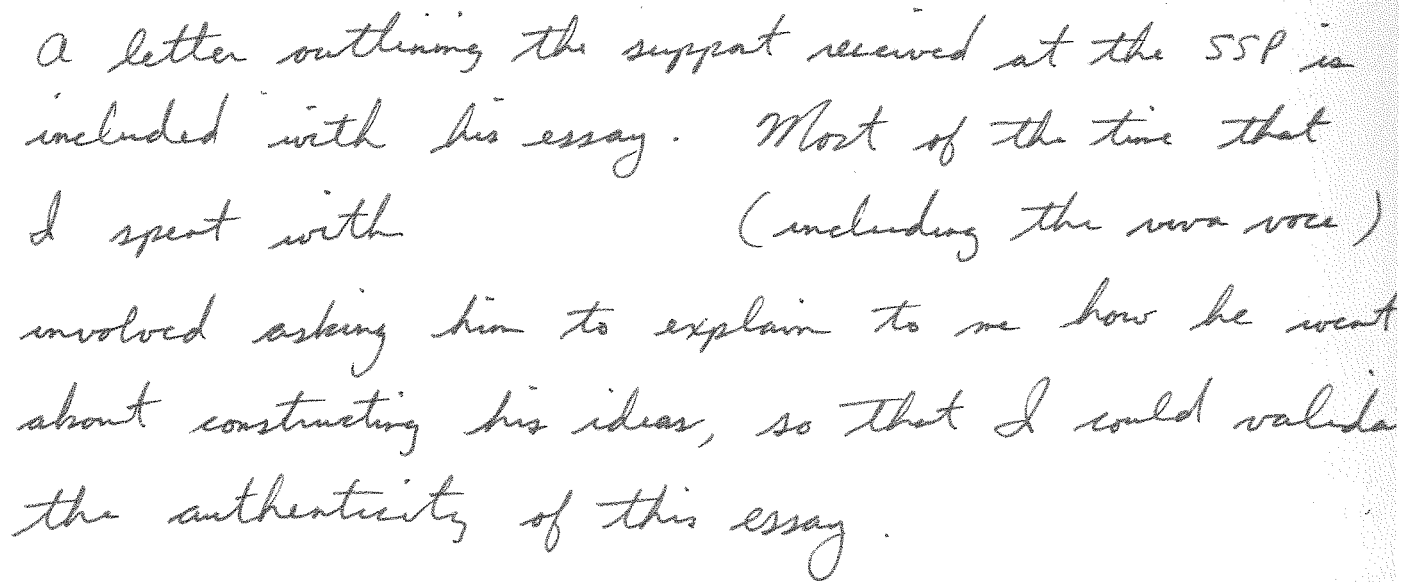 A letter outlining the support received at the SSP is
included with his essay. Most of the time that
I spent with (including the viva voce)
involved asking him to explain to me how he went
about constructing his ideas, so that I could valida
the authenticity of this essay.